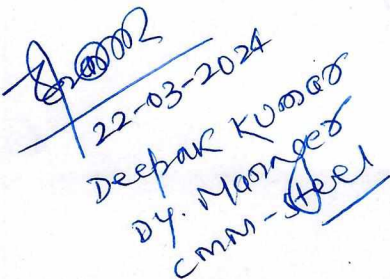 22-03-2024
Deepak Kumar
Dy. Manager
CMM-Steel